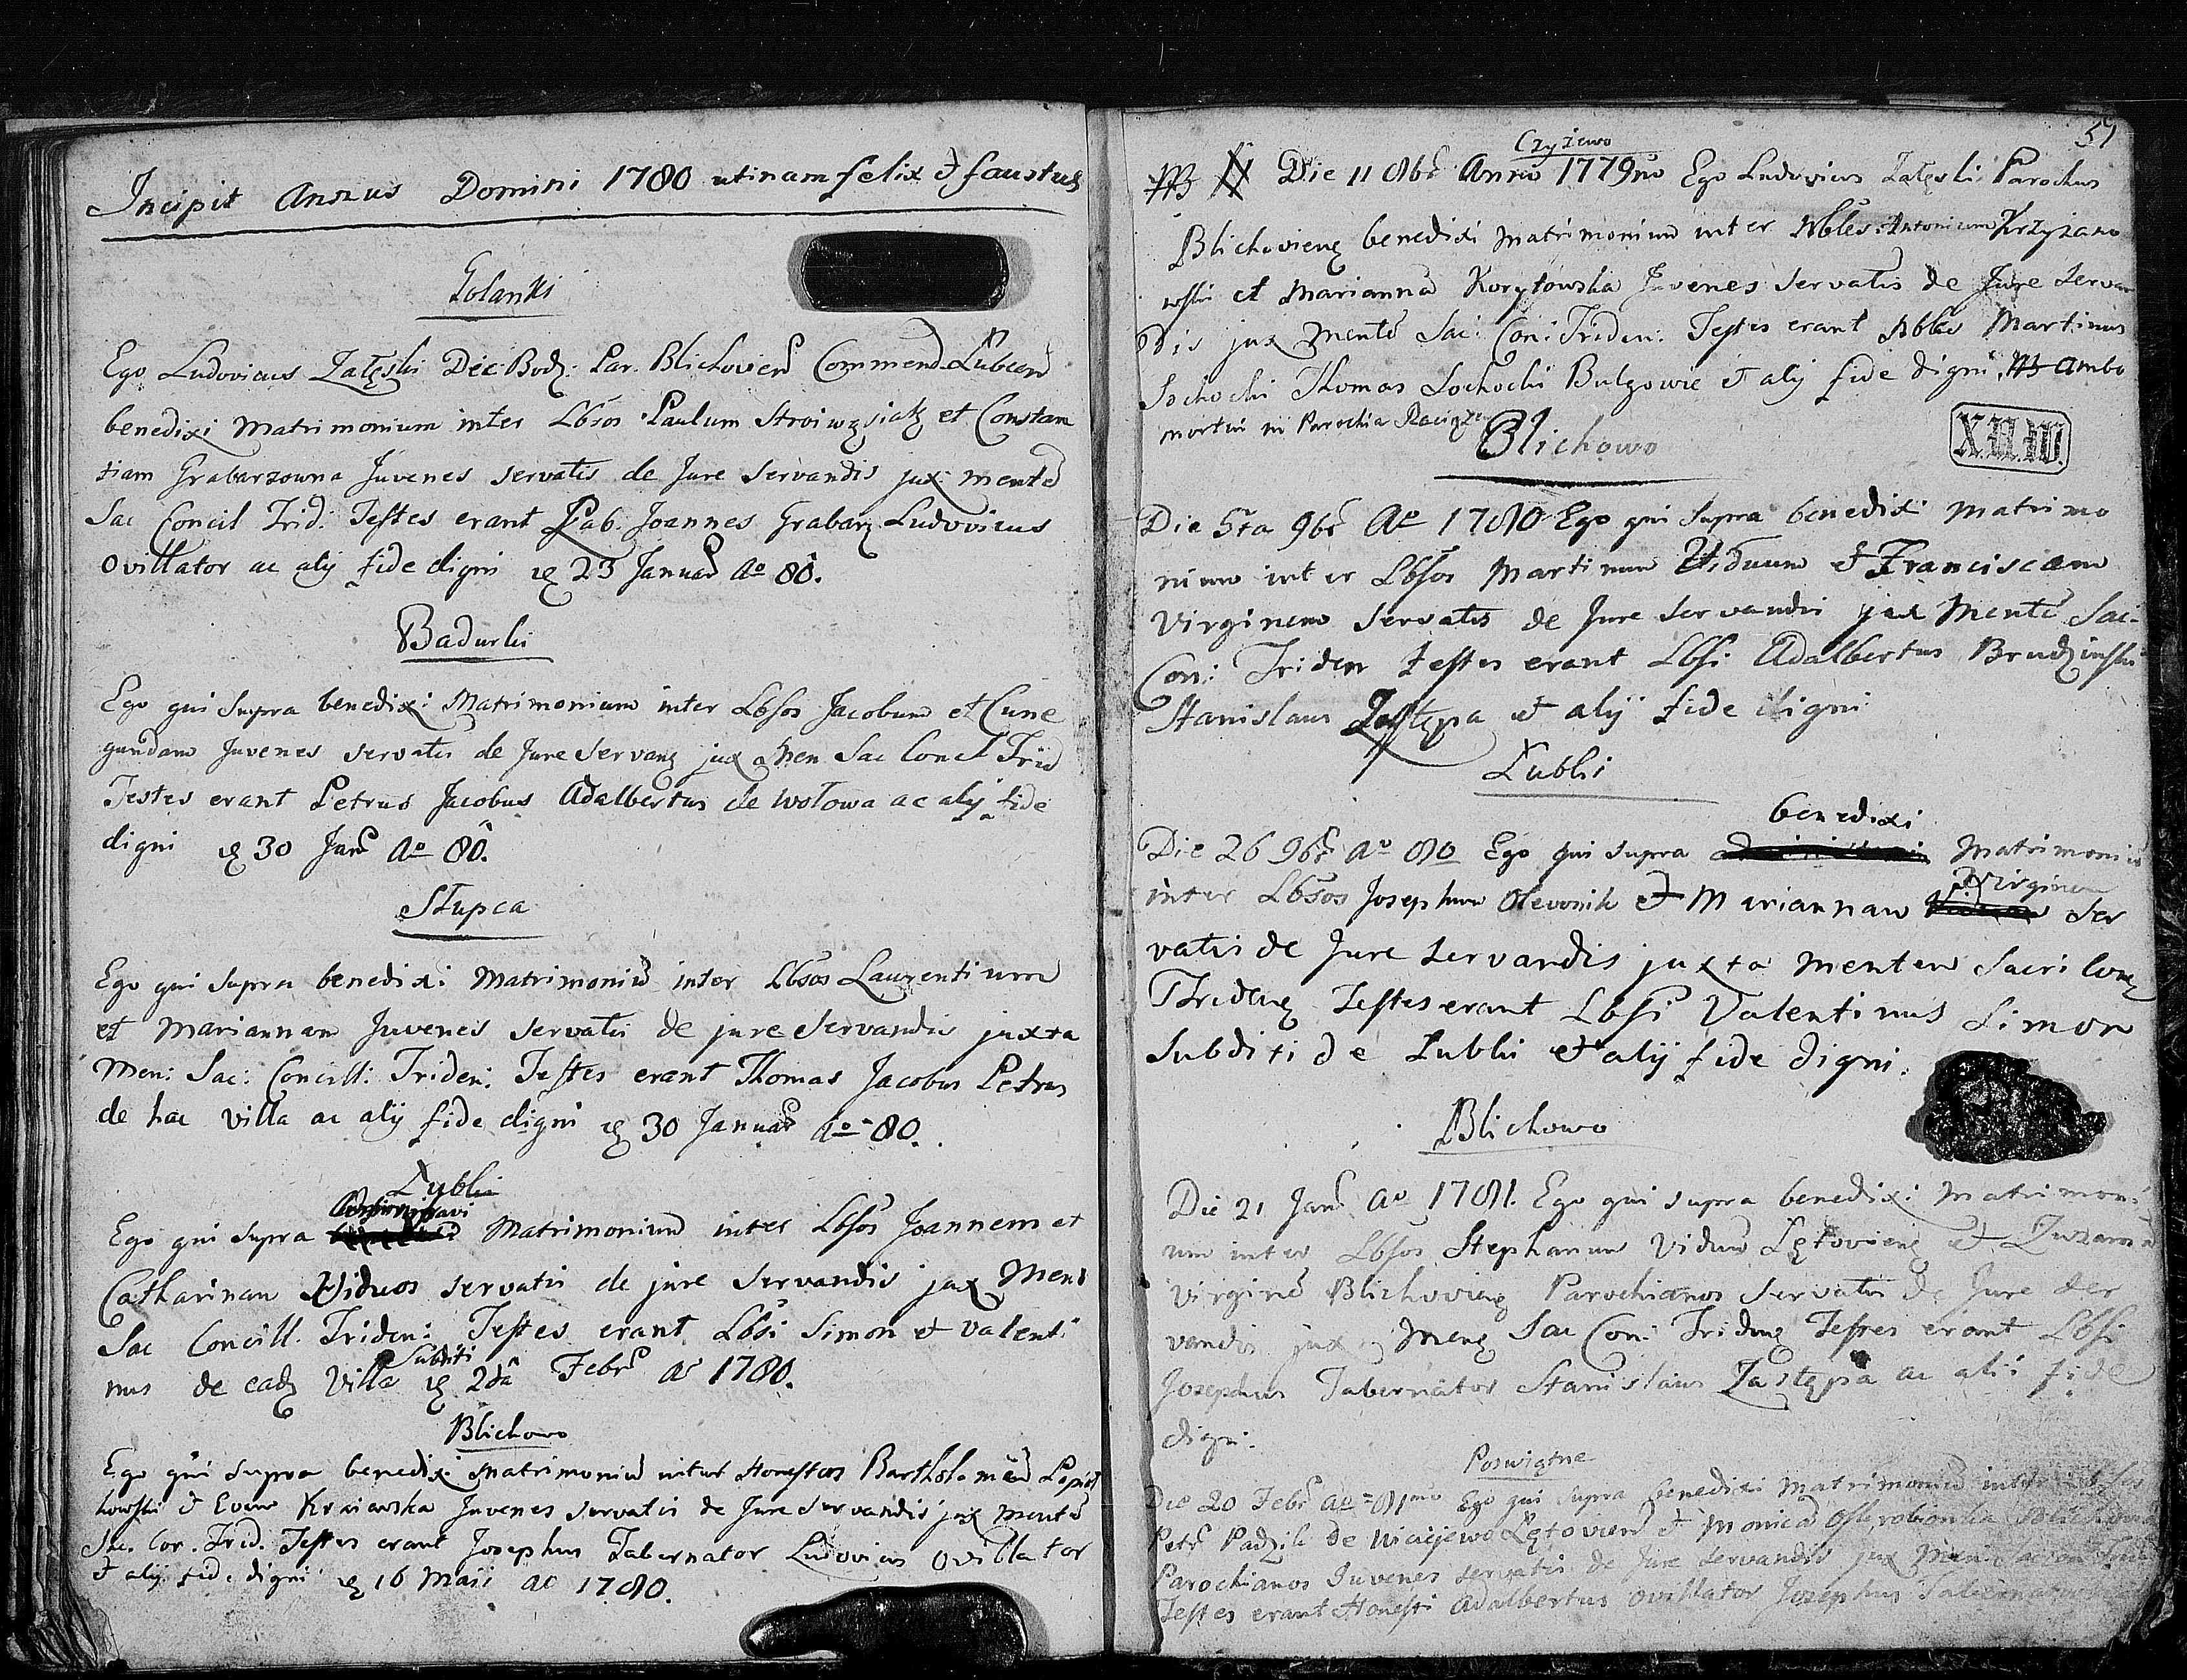 Incipit Annus Domini 1780 utinam felix et faustus
Golanki
Ego Ludovicus Załęski Dec: Bodz: Par. Blichovien Commend Lubcen
benedixi Matrimonium inter Lbsos Paulum et Constan
tiam Grabarzowna Juvenes servatis de Jure servandis jux mentē
Sac Concil Trid: Testes erant Lab. Joannes Grabarz Ludovicus
ovillator ac alij fide digni 23 Januar Ao 80.
Badurki
Ego qui supra benedixi Matrimonium inter Lbsos Jacobum et Cune
gundam Juvenes servatis de Jure servan jux Men Sac Concl Trid
Testes erant Petrus Jacobus Adalbertus de Wołowa ac alij fide
digni 30 Jan Ao 80.
Słupca
Ego qui supra benedixi Matrimoniū inter Lbsos Laurentium
et Mariannam Juvenes servatis de jure servandis juxta
Men: Sac: Concill: Triden: Testes erant Thomas Jacobus Petrus
de hac villa ac alij fide digni 30 Januar Ao 80.
Lubki
Ego qui supra Matrimonium inter Lbsos Joannem et
Catharinam Viduos servatis de jure servandis jux Men:
Sac Concill. Triden: Testes erant Lbsi Simon et Valenti
nus de ead Villa Subditi 2da Febr Ao 1780.
Blichowo
Ego qui supra benedixi Matrimoniū inter Honestos Bartholomeū
et Evam Juvenes servatis de Jure servandis jux mentē
Sac. Con. Trid. Testes erant Josephus Tabernator Ludovicus ovillator
et alij fide digni 16 Maii Ao 1780.
59
Czyżewo
Die 11 8br Anno 1779no Ego Ludovicus Załęski Parochus
Blichovien benedixi Matrimonium inter Nbles Antonium Krzyżano
wski et Marianna Korytowska Juvenes servatis de Jure servan
dis jux Mentē Sac: Con: Triden: Testes erant Nbles Martinus
Sochocki Thomas Sochocki Bulgowie et alij fide digni, NB ambo
mortui in Parochia
Blichowo
Die 5ta 9br Ao 1780 Ego qui supra benedixi Matrimo
nium inter Lbsos Martinum Viduum et Franciscam
Virginem servatis de Jure servandis jux Mentē Sac:
Con: Triden Testes erant Lbsi Adalbertus Brudzinski
Stanislaus Zastępa et alij fide digni
Lubki
Die 26 9br Ao 80 Ego qui supra benedixi Matrimoniū
inter Lbsos Josephum et Mariannam Virginem ser
vatis de Jure servandis juxta mentem Sacri Con
Triden Testes erant Lbsi Valentinus Simon
Subditi de Lubki et alij fide digni.
Blichowo
Die 21 Jan Ao 1781. Ego qui supra benedixi Matrimoni
um inter Lbsos Stephanum Viduū Łętovien et Zuzannā
Virginē Blichovien Parochianos servatis de Jure ser
vandis jux Men Sac Con: Triden Testes erant Lbsi
Josephus Tabernator Stanislaus Zastępa ac alii fide
digni.
Poswiętne
Die 20 Febr Ao 81mo Ego qui supra benedixi Matrimoniū inter Lbsos
Petr de Łętovien et Monicā
Parochianos Juvenes servatis de Jure servandis jux Men:
Testes erant Honesti Adalbertus ovillator Josephus Tabernator